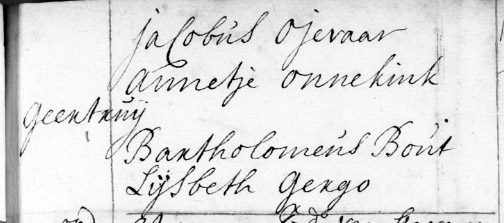 jacobus ojevaar
annetje onnekink
geertruij
Bartholomeus Bout
Lijsbeth Gergo